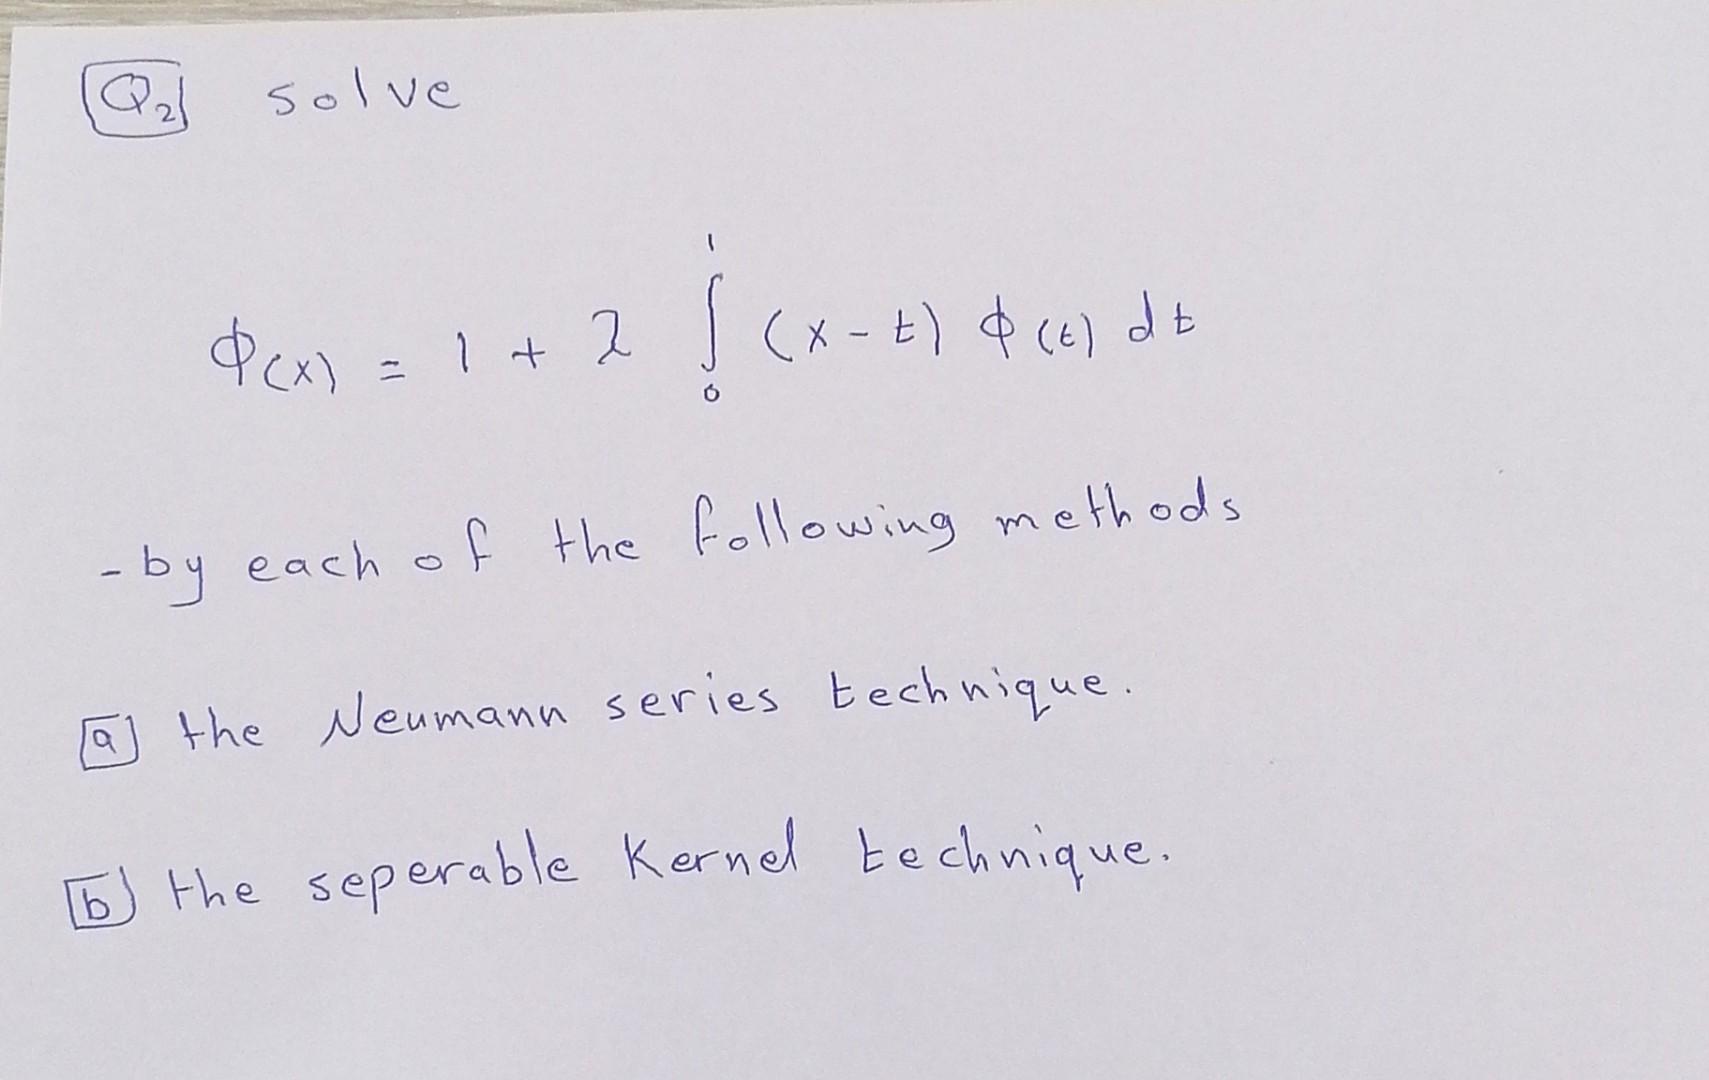 Q2 solve
ϕ(x) = 1 + λ ∫₀¹ (x - t) ϕ(t) dt
- by each of the following methods
a the Neumann series technique.
b the seperable Kernel technique.